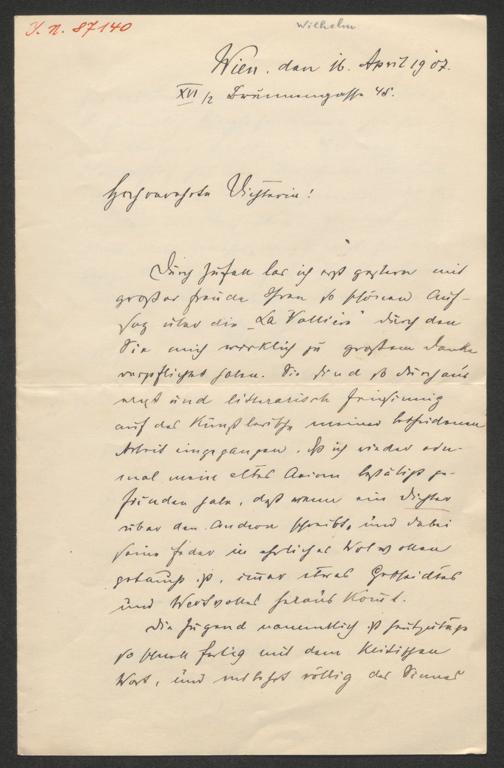 J. N. 87140
Wilhelm
Wien. den 16. April 1907.
XVI/2 Brunnengasse 45.
Hochverehrte Dichterin!
Durch Zufall las ich erst gestern mit
großer Freude Ihren so schönen Auf-
satz über die „La Vallière" durch den
Sie mich wirklich zu großem Danke
verpflichtet haben. Sie sind so durchaus
ernst und litterarisch feinsinnig
auf das Künstlerische meiner bescheidenen
Arbeit eingegangen, daß ich wieder ein-
mal mein altes Axiom bestätigt ge-
funden habe, daß wenn ein Dichter
über den Andern schreibt, und dabei
seine Feder in ehrliches Wolwollen
getaucht ist, immer etwas Gescheidtes
und Wertvolles heraus kommt.
Die Jugend namentlich ist heutzutage
so schnell fertig mit dem kritischen
Wort, und entbehrt völlig des Sinnes